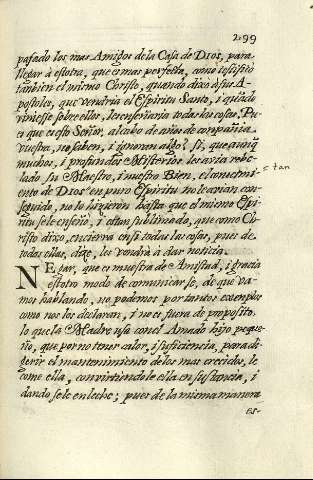 299
pasado los mas Amigos de la Casa de Dios, para
llegar à estotra, que es mas perfecta, como testificò
tanbien el mismo Christo, quando dixo à sus A-
postoles, que vendria el Espiritu Santo, i quãdo
viniesse sobre ellos, les enseñaria todas las cosas, Pu-
es que es esto Señor, al cabo de años de conpañia
vuestra, no saben, i ignoran algo? si, que aunq̃
muchos, i profundos Misterios les avia reve-
lado su Maestro, i nuestro Bien, el conocimi-
ento de Dios en puro Espiritu no le avian con-
seguido, no lo hizieron hàsta que el mismo Espi-
ritu se le enseñò, i es tan sublimado, que como Ch-
risto dixo, encierra en si todas las cosas, pues de
todas ellas, dixo, les vendrà à dar noticia.
tan
NEgar, que es muestra de Amistad, i gracia
estotro modo de comunicarse, de que va-
mos hablando, no podemos por tantos exemplos
como nos los declaran, i no es fuera de proposito
lo que la Madre usa con el Amado hijo peque-
ño, que por no tener calor, i suficiencia, para di-
gerir el mantenimiento de los mas crecidos, le
come ella, convirtiendole ella en sustancia, i
dandosele en leche; pues de la misma manera
es-